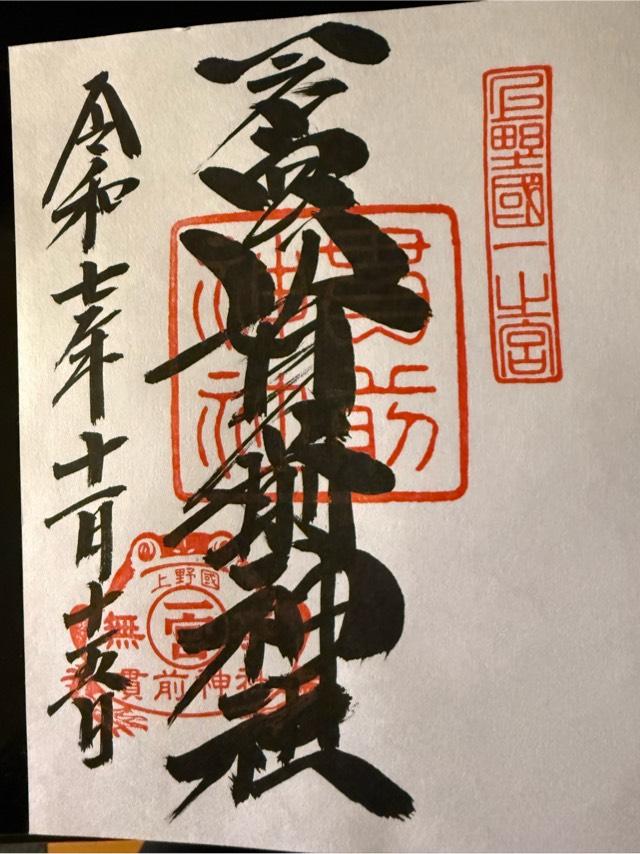 上野國一之宮
貫前
神社
一之宮貫前神社
令和七年十一月十五日
上野國
一宮
無
貫前神社